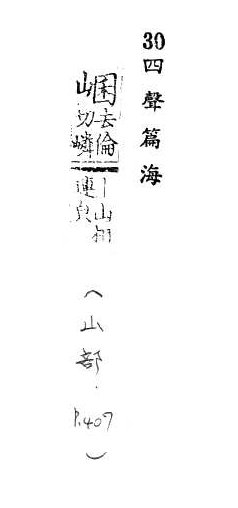 30四聲篇海
崓去倫切嶙崓山相連皃
(山部.P.407)